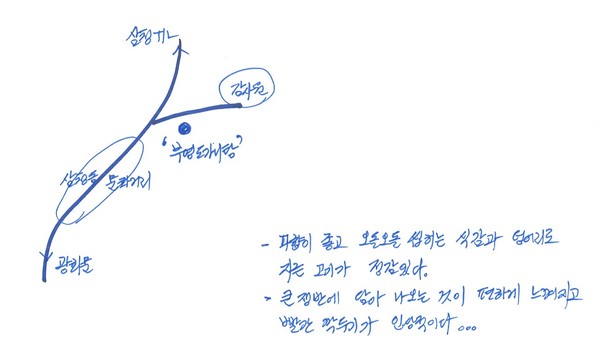 삼청터널
감사원
'부영도가니탕'
삼청동 문화거리
광화문
- 파향이 좋고 오돌오돌 씹히는 식감과 덩어리로
지는 고기가 정감있다.
- 큰 쟁반에 담아 나오는 것이 편하게 느껴지고
빨간 깍두기가 인상적이다...